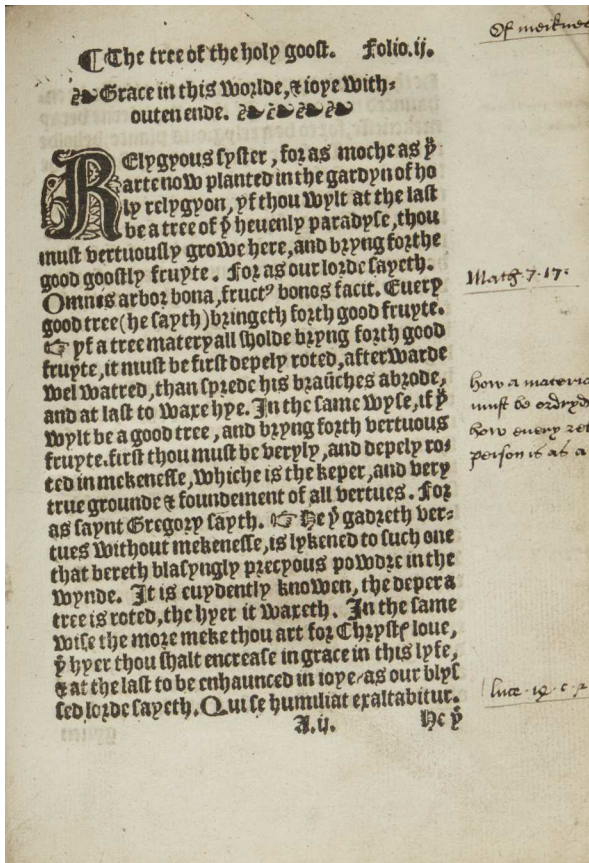 Of meeknes
¶ The tree of the holy goost. Folio.ij.
❧ Grace in this worlde, & ioye with⸗
outen ende. ❧ ❧ ❧ ❧
RElygyous syster, for as moche as yͧ
arte now planted in the gardyn of ho
ly relygyon, yf thou wylt at the last
be a tree of yͤ heuenly paradyse, thou
must vertuously growe here, and bryng forthe
good goostly fruyte. For as our lorde sayeth.
Omnis arbor bona, fructꝰ bonos facit. Euery
good tree (he sayth) bringeth forth good fruyte.
Math 7. 17.
☞ yf a tree materyall sholde bryng forth good
fruyte, it must be first depely roted, afterwarde
wel watred, than sprede his braūches abrode,
how a materia
and at last to waxe hye. In the same wyse, if yͧ
must be ordryd
wylt be a good tree, and bryng forth vertuous
how euery rel
fruyte. first thou must be veryly, and depely ro⸗
person is as a
ted in mekenesse, whiche is the keper, and very
true grounde & foundement of all vertues. For
as saynt Gregory sayth. ☞ He yͭ gadreth ver⸗
tues without mekenesse, is lykened to such one
that bereth blasyngly precyous powdre in the
wynde. It is euydently knowen, the deper a
tree is roted, the hyer it waxeth. In the same
wise the more meke thou art for Chrystꝭ loue,
yͤ hyer thou shalt encrease in grace in this lyfe,
& at the last to be enhaunced in ioye, as our blys
luce
sed lorde sayeth. Qui se humiliat exaltabitur.
A.ij. He yͭ